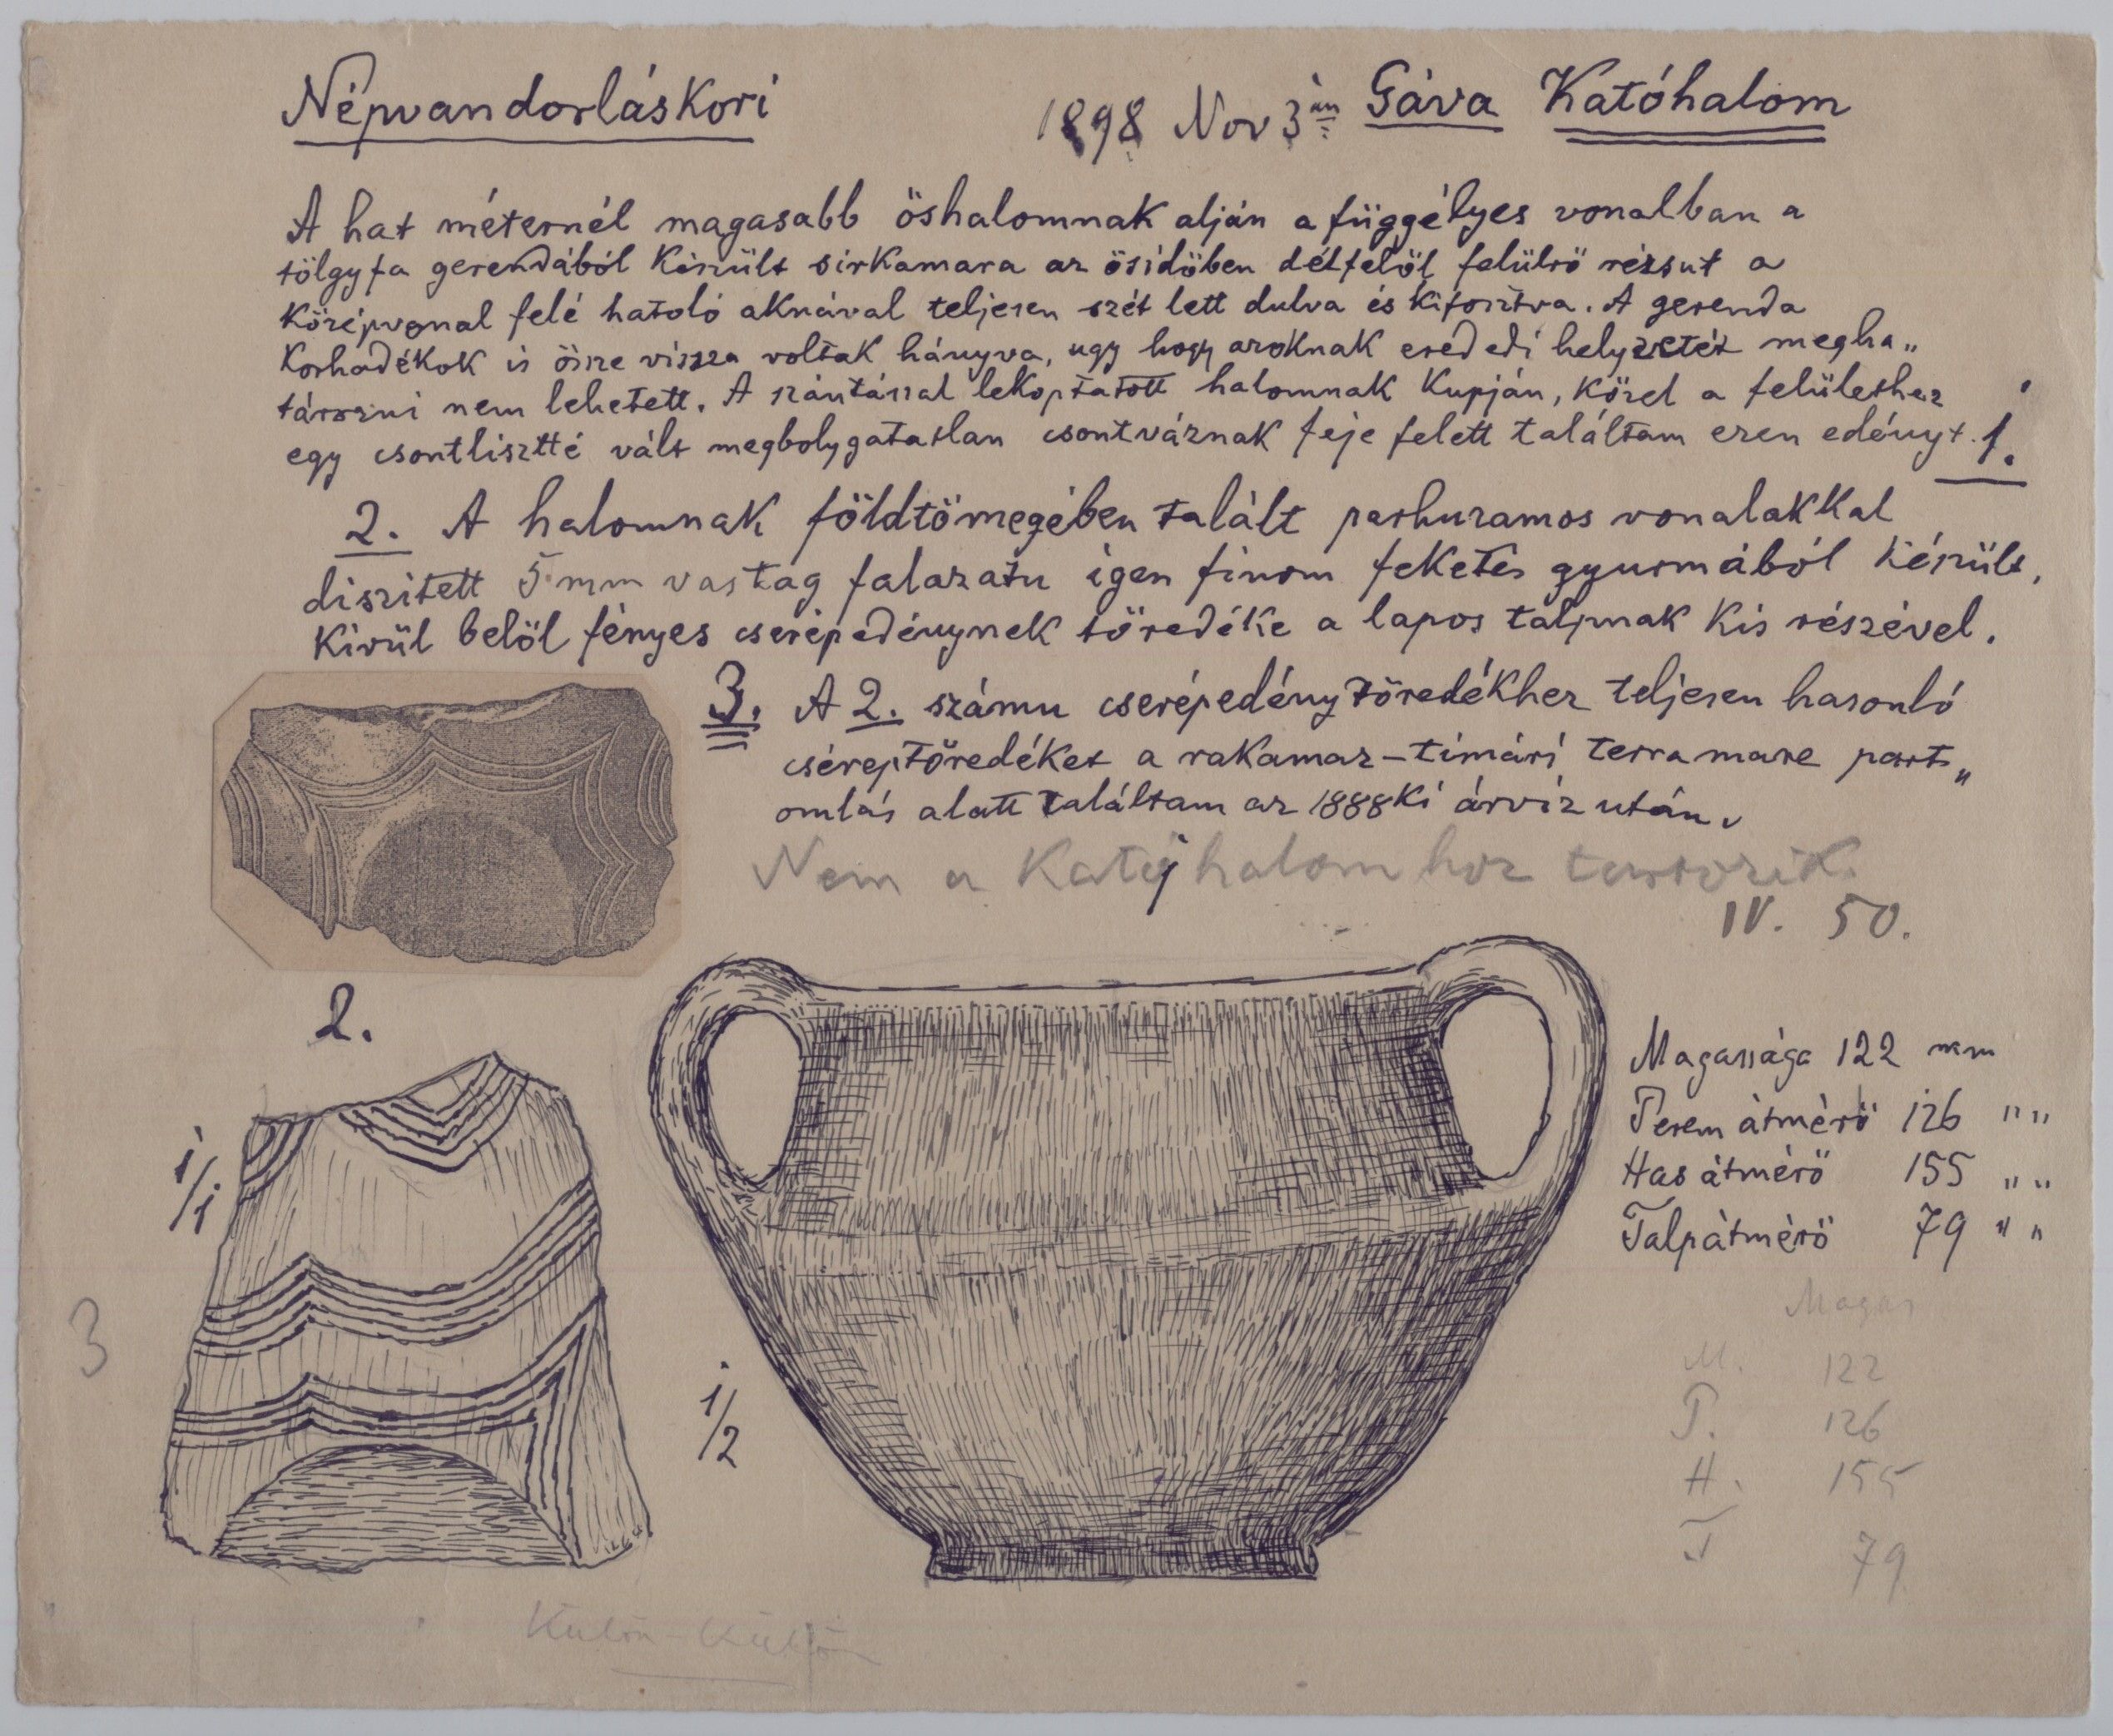 Népvandorláskori
1898 Nov 3án Gáva Katóhalom
A hat méternél magasabb öshalomnak alján a függélyes vonalban a
tölgyfa gerendából készült sirkamara az ösidöben délfelöl felülrö rézsut a
középvonal felé hatoló aknával teljesen szét lett dulva és kifosztva. A gerenda
korhadékok is össze vissza voltak hányva, ugy hogy azoknak eredeti helyzetét megha„
tározni nem lehetett. A szántással lekoptatott halomnak kupján, közel a felülethez
egy csontlisztté vált megbolygatatlan csontváznak feje felett találtam ezen edényt. 1.
2. A halomnak földtömegében talált parhuzamos vonalakkal
diszitett 5 mm vastag falazatu igen finom feketés gyurmából készült,
kivül belöl fényes cserépedénynek töredéke a lapos talpnak kis részével.
3. A 2. számu cserépedény töredékhez teljesen hasonló
cséreptöredéket a rakamaz-timári terramare part„
omlás alatt találtam az 1888ki árviz után.
Nem a Katóhalomhoz tartozik.
IV. 50.
2.
1/1
3
1/2
Magassága 122 mm
Perem átmérö 126 " "
Has átmérö 155 " "
Talpátmérö 79 " "
Magas
M. 122
P. 126
H. 155
T 79
Külön-külön